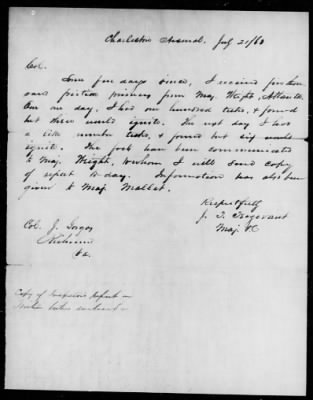 Charleston Arsenal. July 21/63
Col.
Some few days since, I received five thou
sand friction primers from Maj. Wright, Atlanta.
On one day, I had one hundred tried, & found
but three would ignite. The next day I had
a like number tried, & found but six would
ignite. The fact has been communicated
to Maj. Wright, to whom I will send copy
of report to day. Information has also been
given to Maj. Mallet.
Respectfully
J. T. Trezevant
Maj.
Col. J. Gorgas
Richmond
Va.
Copy of Inspector's Report on